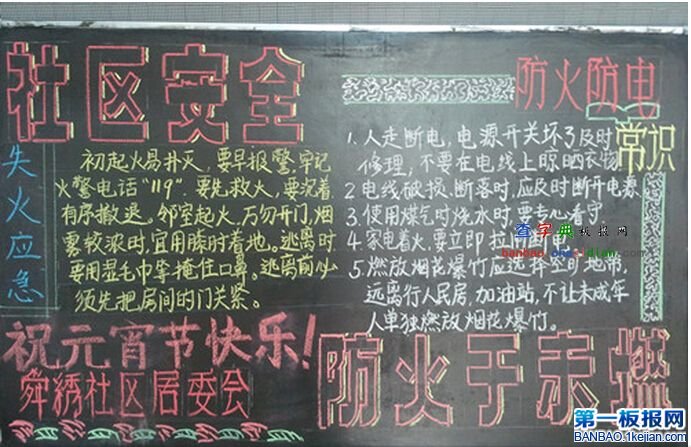 社区安全
失火应急
初起火易扑灭，要早报警，牢记
火警电话"119"。要先救火，要沉着
有序撤退。邻室起火，万勿开门，烟
雾较浓时，宜用膝肘着地。逃离时
要用湿毛巾等掩住口鼻。逃离前必
须先把房间的门关紧。
祝元宵节快乐！
舜绣社区居委会
防火防电
常识
1. 人走断电，电源开关坏了及时
修理，不要在电线上晾晒衣物
2 电线破损、断落时，应及时断开电源
3. 使用煤气时烧水时，要专心看守
4. 家电着火，要立即拉闸断电
5. 燃放烟花爆竹应选择空旷地带，
远离行人民房，加油站，不让未成年
人单独燃放烟花爆竹。
防火于未燃
查字典板报网
第一板报网
BANBAO.1kejian.com